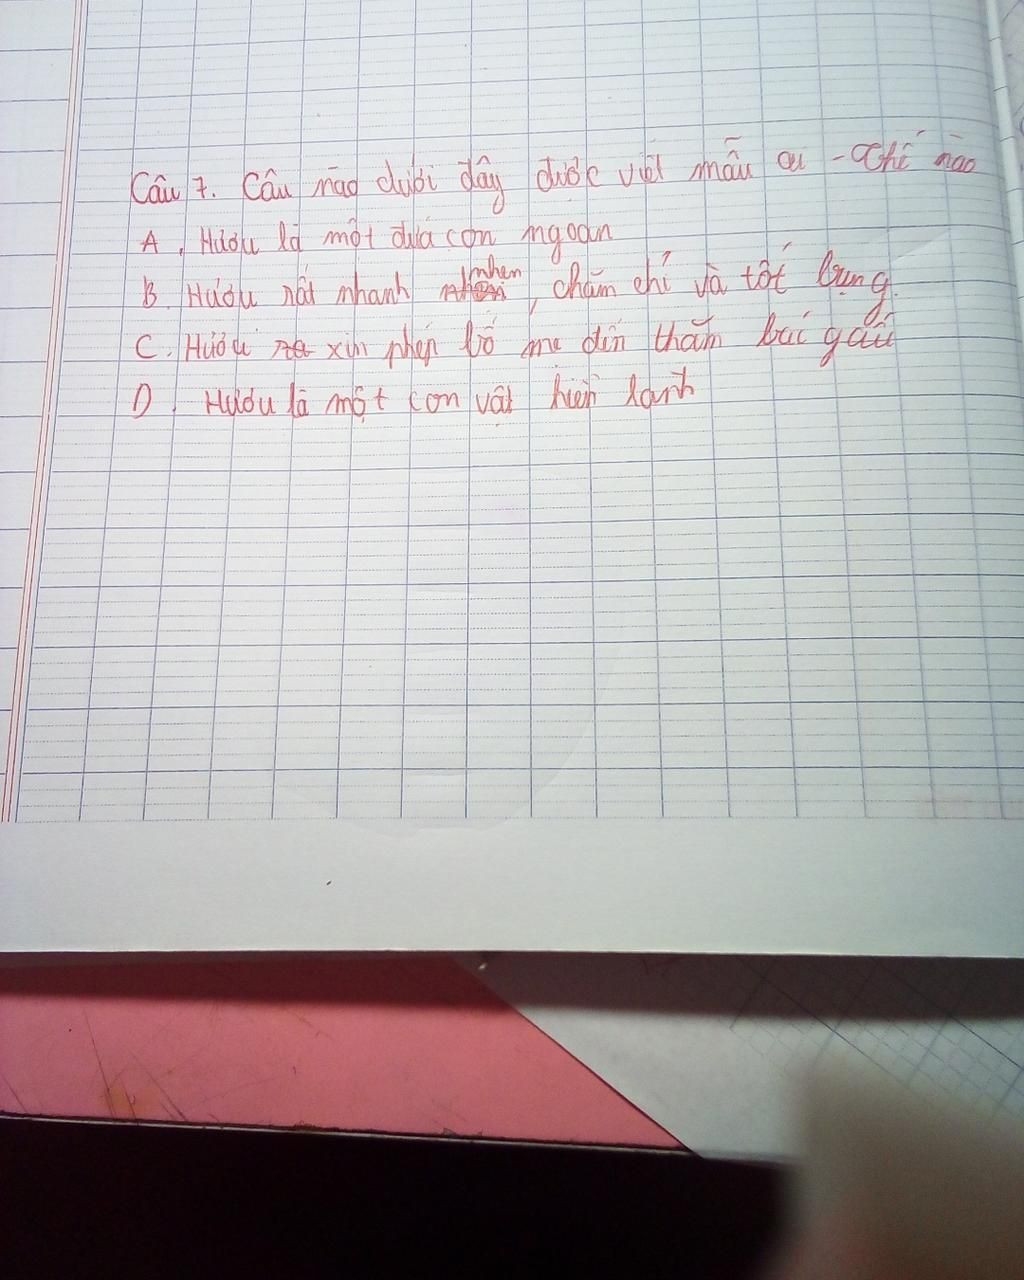 Câu 7. Câu nào dưới đây được viết mẫu ai - Thế nào
A. Hươu là một đứa con ngoan
B. Hươu rất nhanh nhẹn, chăm chỉ và tốt bụng.
C. Hươu xin phép bố mẹ đến thăm bác gấu
D. Hươu là một con vật hiền lành